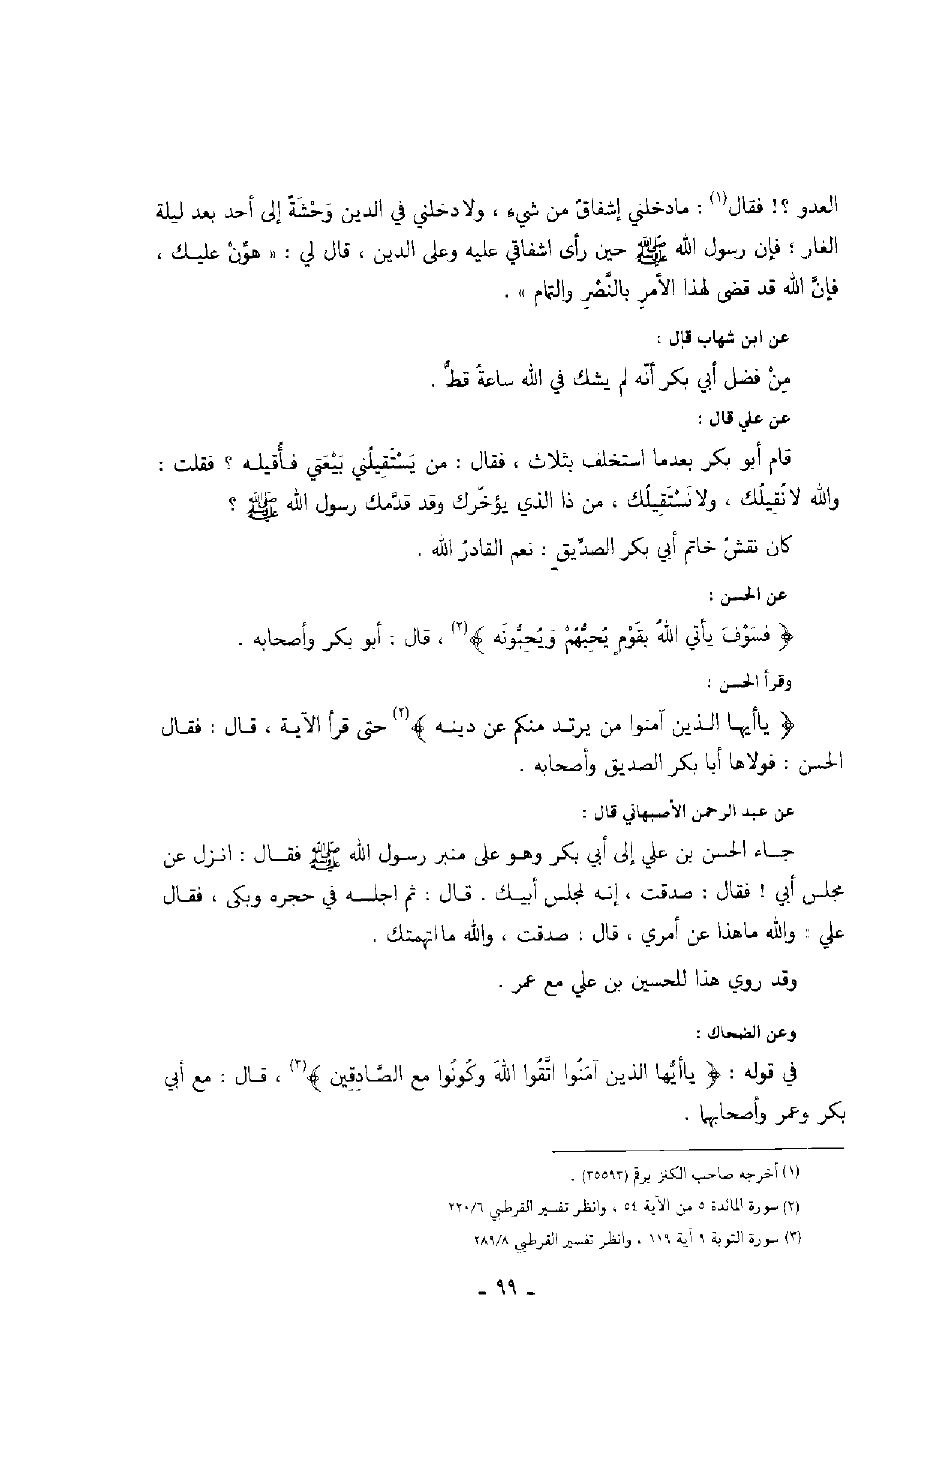 العدو ؟! فقال(١) : مادخلني إشفاقٌ من شيء ، ولا دخلني في الدين وَحْشَةٌ إلى أحد بعد ليلة
الغار ؛ فإن رسول الله ﷺ حين رأى اشفاقي عليه وعلى الدين ، قال لي : « هوِّنْ عليـك ،
فإنَّ الله قد قضى لهذا الأمرِ بالنَّصْرِ والتمام » .
عن ابن شهاب قال :
مِنْ فضل أبي بكر أنّه لم يشك في الله ساعةً قطُّ .
عن علي قال :
قام أبو بكر بعدما استخلف بثلاث ، فقال : من يَسْتَقِيلُني بَيْعَتي فـأُقيلـه ؟ فقلت :
والله لا نُقيلُك ، ولا نَسْتَقيلُك ، من ذا الذي يؤخّرك وقد قدَّمك رسول الله ﷺ ؟
كان نقشُ خاتم أبي بكر الصدِّيق : نعم القادرُ الله .
عن الحسن :
﴿ فسَوْفَ يأتي اللهُ بقَوْمٍ يُحِبُّهُمْ وَيُحبُّونَه ﴾(٢) ، قال : أبو بكر وأصحابه .
وقرأ الحسن :
﴿ ياأيها الـذين آمنوا من يرتـد منكم عن دينـه ﴾(٢) حتى قرأ الآيـة ، قـال : فقـال
الحسن : فولاها أبا بكر الصديق وأصحابه .
عن عبد الرحمن الأصبهاني قال :
جـاء الحسن بن علي إلى أبي بكر وهـو على منبر رسول الله ﷺ فقـال : انـزل عن
مجلس أبي ! فقال : صدقت ، إنـه لمجلس أبيـك . قـال : ثم اجلسـه في حجره وبكى ، فقـال
علي : والله ماهذا عن أمري ، قال : صدقت ، والله ما اتهمتك .
وقد روي هذا للحسين بن علي مع عمر .
وعن الضحاك :
في قوله : ﴿ ياأيُّها الذين آمَنُوا اتَّقُوا اللهَ وكُونُوا مع الصَّادِقِين ﴾(٣) ، قـال : مع أبي
بكر وعمر وأصحابهما .
(١) أخرجه صاحب الكنز برقم (٣٥٥٩٣) .
(٢) سورة المائدة ٥ من الآية ٥٤ ، وانظر تفسير القرطبي ٢٢٠/٦
(٣) سورة التوبة ٩ آية ١١٩ ، وانظر تفسير القرطبي ٢٨٩/٨
- ٩٩ -